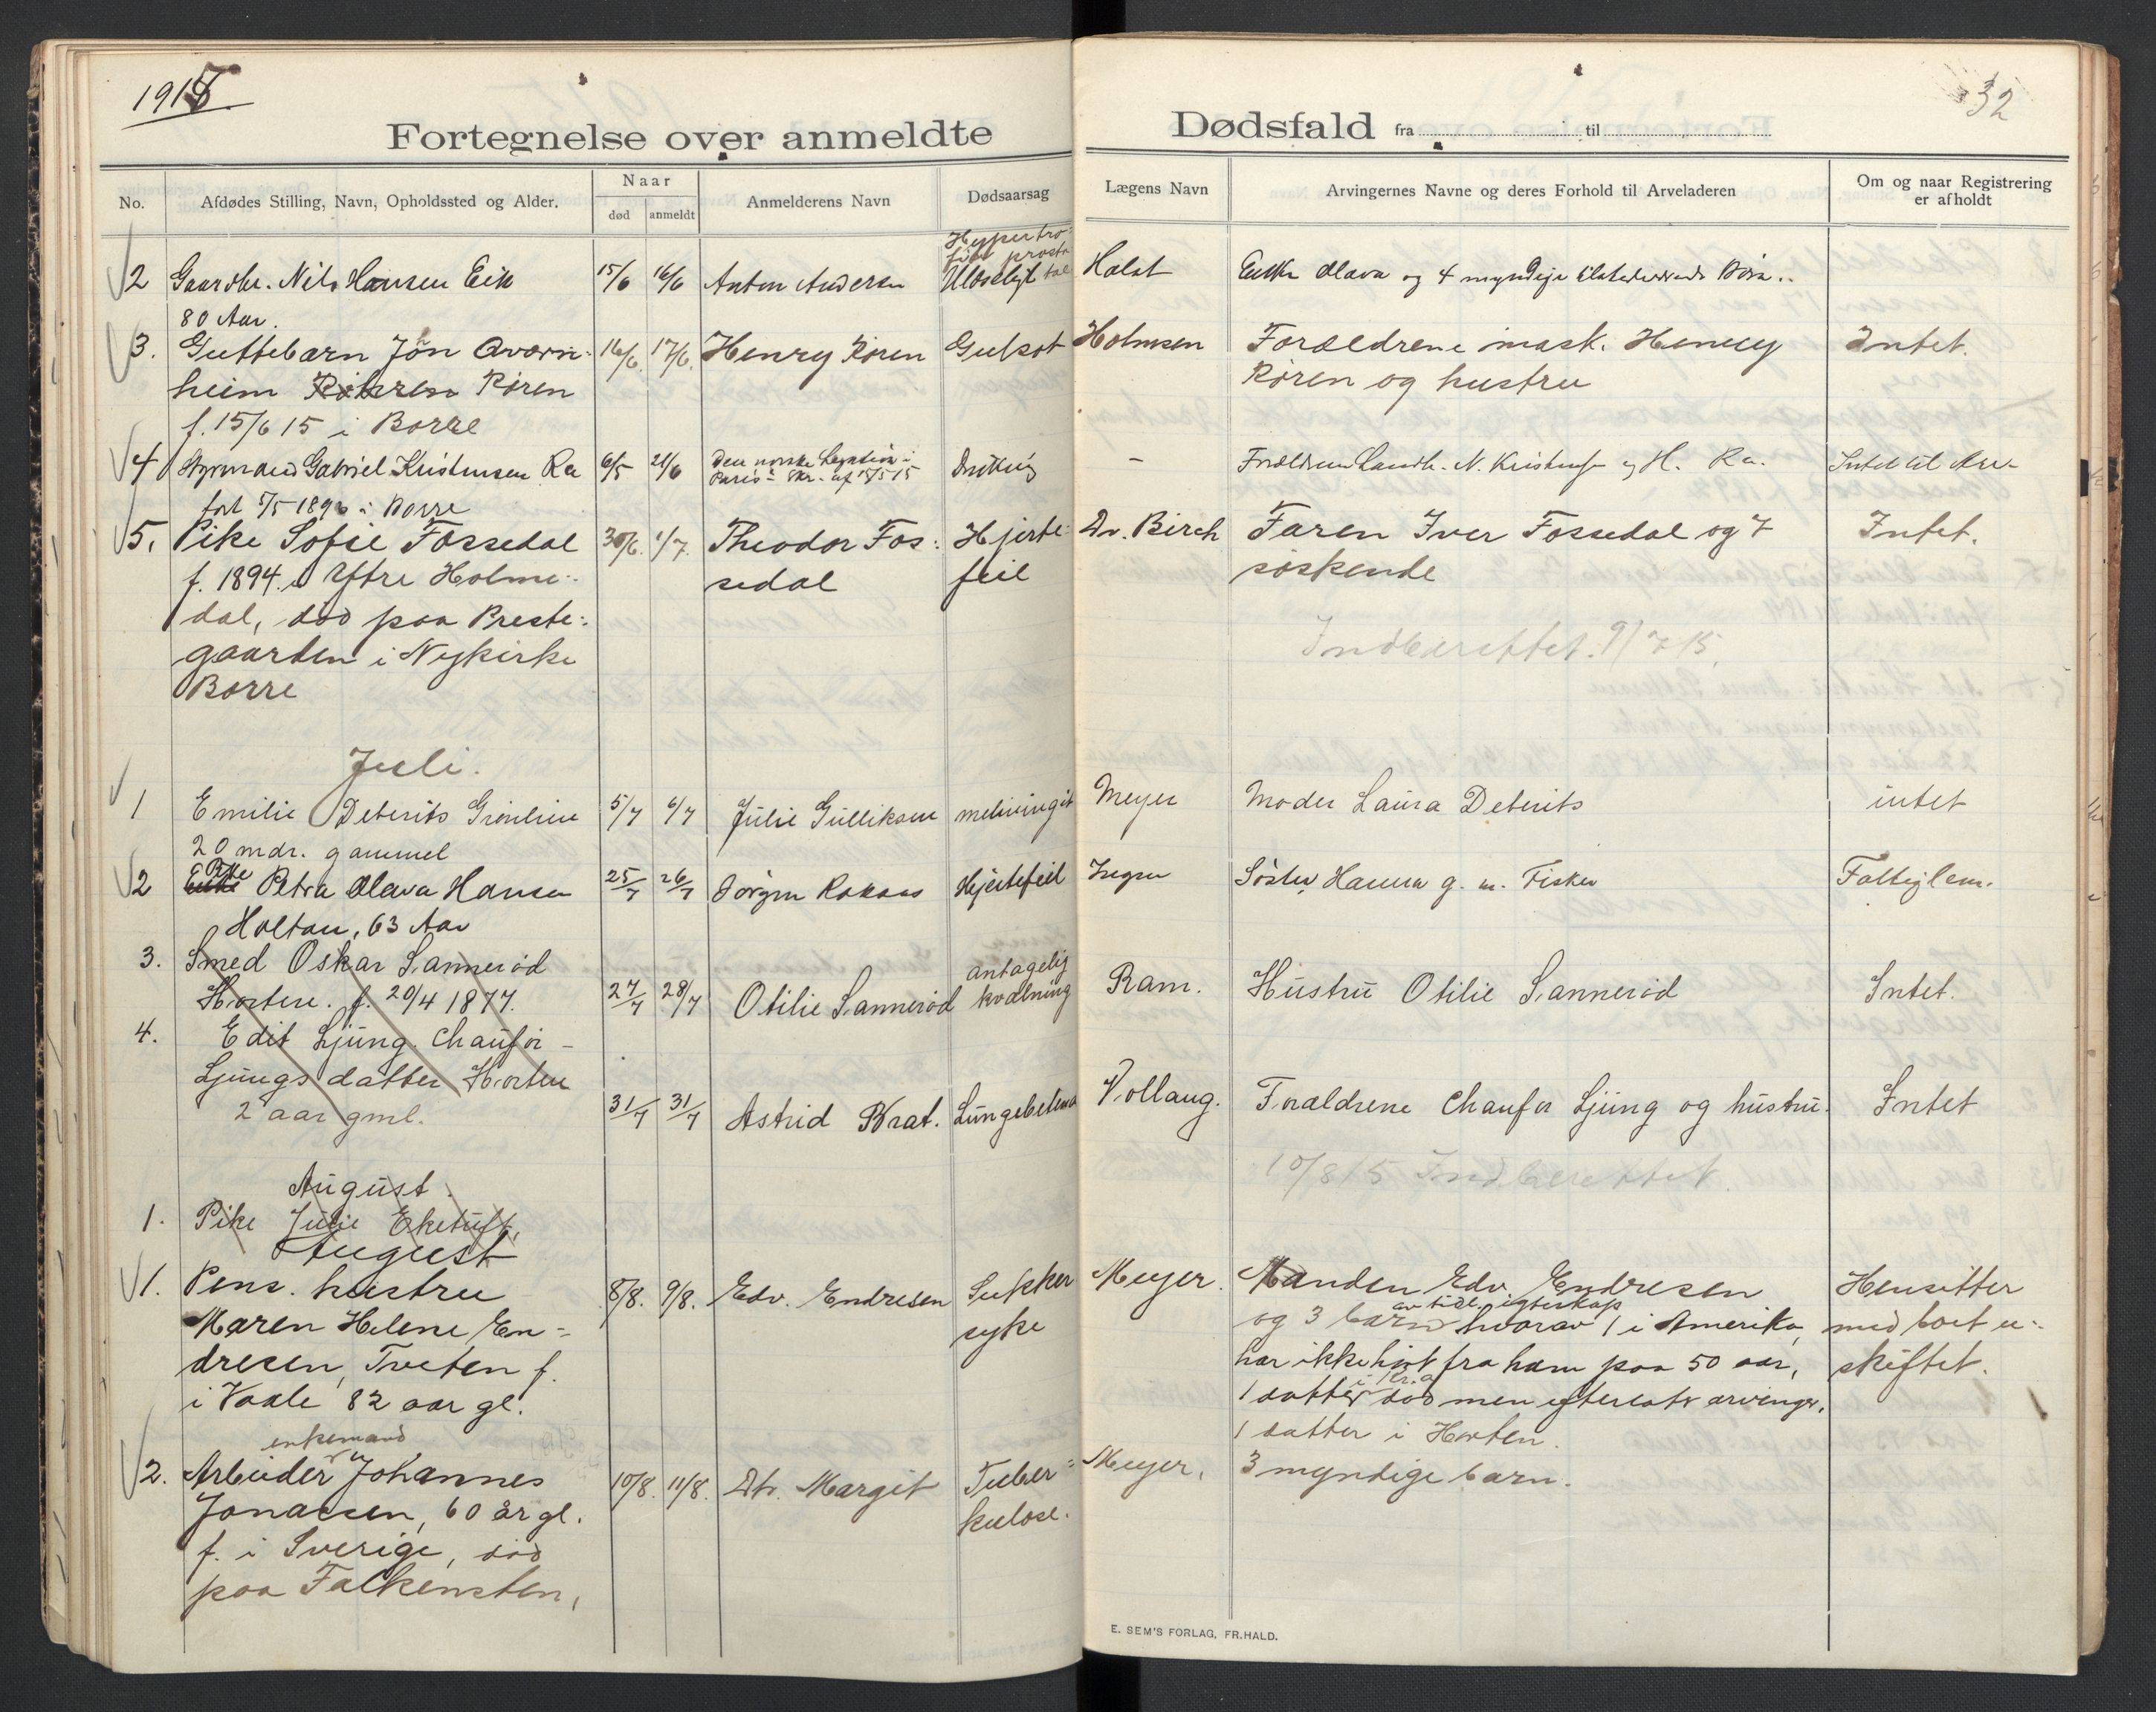 1915.
32
Fortegnelse over anmeldte
Dødsfald fra til
No.
Afdødes Stilling, Navn, Opholdssted og Alder.
Naar
død
anmeldt
Anmelderens Navn
Dødsaarsag
Lægens Navn
Arvingernes Navne og deres Forhold til Arveladeren
Om og naar Registrering
er afholdt
2 Gaardbr. Nils Hansen Eik 15/6 16/6 Anton Andersen Holst Enke Olava og 4 myndige
80 Aar.
3. Guttebarn Jøn 16/6. 17/6. Henry Røren Gulsot Holmsen Forældrene mask. Henry Intet.
heim Røren Røren og hustru
f. 15/6 15 i Borre
4 Styrmand Gabriel Kristensen Ra 6/5 21/6 Den norske Legation i - N. H. Ra. Intet til
Paris's Skr. af 15/5 15
født 5/5 1890 i Borre
5. Pike Sofie Fossedal 30/6. 1/7. Theodor Fos: Hjerte- Dr. Birch Faren Iver Fossedal og 7 Intet.
f. 1894 i Ytre Holme- sedal feil søskende
dal, død paa Preste:
gaarden i Nykirke
Borre
Indberettet. 9/7 15.
Juli.
1 Emilie Deberits 5/7 6/7 Julie Gulliksen Meyer Moder Laura Deberits intet
20 mdr. gammel
2 Pike Petra Olava Hansen 25/7 26/7 Jørgen Hjertefeil Søster Hanna g. m. Fisker
Holtan, 63 Aar
3. Smed Oskar Sannerød antagelig
Horten. f. 20/4 1877. 27/7 28/7 Otilie Sannerød kvælning Ram. Hustru Otilie Sannerød Intet.
4. Edit Ljung. Chaufør
Ljungs datter Horten
2 aar gml. 31/7 31/7 Astrid Krat. Vollaug. Forældrene Chaufør Ljung og hustru. Intet
10/8 15 Indberettet.
August.
1. Pike Julie Eketuft,
August
1. Pens. hustru 8/8. 9/8. Edv. Endresen Sukker Meyer. Manden Edv. Endresen Hensitter
Maren Helene En- syke av tidl. egteskap
og 3 barn hvorav 1 i Amerika, med boet u-
dresen, Tveten f. har ikke hørt fra ham paa 50 aar, skiftet.
i Kr.a
i Vaale 82 aar gl. 1 datter død men efterlatr arvinger,
1 datter i Horten.
enkemand
2. Arbeider Johannes 10/8. 11/8. Dtr. Margit Tuber- Meyer, 3 myndige barn.
Jonassen, 60 år gl. kulose.
f. i Sverige, død
paa Falkensten,
E. SEM'S FORLAG, FR.HALD.